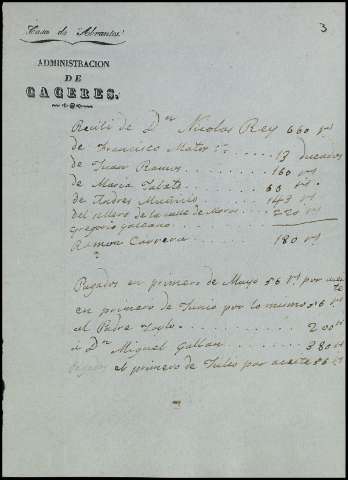 Casa de Abrantes.
3
ADMINISTRACION
DE
CACERES.
Recibi de Dn Nicolas Rey 660 rs
de Francisco Mateo 13 ducados
de Juan Ramos 160 rs
de Maria Jabata 60 rs
de Andres 143 rs
del sillero de la calle de Moros 220 rs
Gregorio Galeano
Ramon Carrera 180 rs
Pagados en primero de Mayo 56 rs por
en primero de Junio por lo mismo 56 rs
al Padre 200 rs
á Dn Miguel Gallan 380 rs
Pagados el primero de Julio por aceite 56 rs